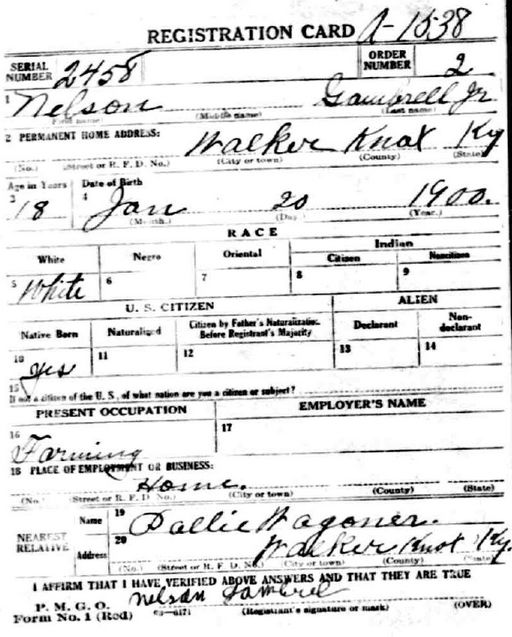 REGISTRATION CARD A-1538
SERIAL NUMBER 2458 ORDER NUMBER 2
1 Nelson Gambrell Jr
(First name) (Middle name) (Last name)
2 PERMANENT HOME ADDRESS: Walker Knox Ky
(No.) (Street or R. F. D. No.) (City or town) (County) (State)
Age in Years Date of Birth
3 18 4 Jan 20 1900.
(Month.) (Day) (Year.)
RACE
White Negro Oriental Indian
Citizen Noncitizen
5 White 6 7 8 9
U. S. CITIZEN ALIEN
Native Born Naturalized Citizen by Father's Naturalization Before Registrant's Majority Declarant Non-declarant
10 yes 11 12 13 14
15 If not a citizen of the U. S., of what nation are you a citizen or subject?
PRESENT OCCUPATION EMPLOYER'S NAME
16 Farming 17
18 PLACE OF EMPLOYMENT OR BUSINESS:
Home.
(No.) (Street or R. F. D. No.) (City or town) (County) (State)
NEAREST RELATIVE Name 19 Dallie Wagoner.
Address 20 Walker Knox Ky.
(No.) (Street or R. F. D. No.) (City or town) (County) (State)
I AFFIRM THAT I HAVE VERIFIED ABOVE ANSWERS AND THAT THEY ARE TRUE
P. M. G. O. Nelson Gambrel
Form No. 1 (Red) (Registrant's signature or mark) (OVER)